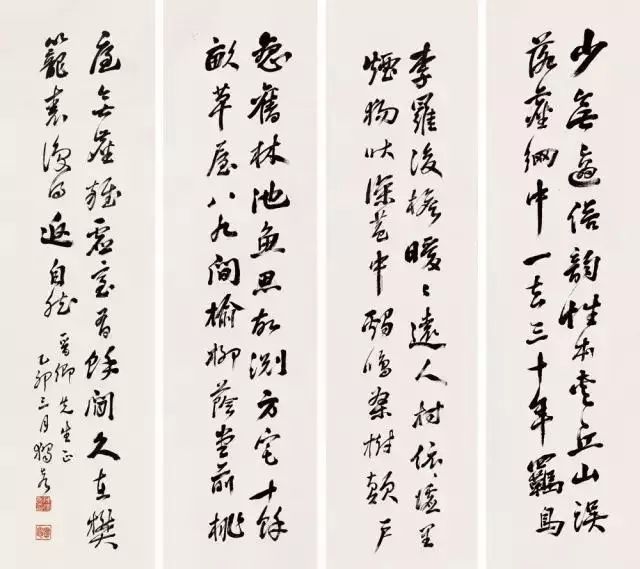 少無適俗韻性本愛丘山誤
落塵網中一去三十年羈鳥
戀舊林池魚思故淵方宅十餘
畝草屋八九間榆柳蔭堂前桃
李羅後檐曖〻遠人村依〻墟里
煙狗吠深巷中雞鳴桑樹顛戶
庭無塵雜虛室有餘閒久在樊
籠裏復得返自然
晉卿先生正
乙卯三月